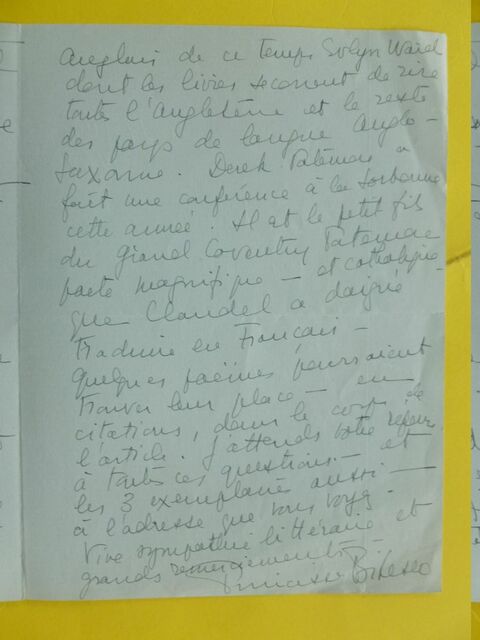 anglais de ce temps Evlyn Waugh
dont les livres secouent de rire
toute l'Angleterre et le reste
des pays de langue anglo-
saxonne. Derek Patmore a
fait une conférence à la Sorbonne
cette année. Il est le petit fils
du grand Coventry Patmore
poète magnifique — et catholique
que Claudel a daigné
traduire en Français —
quelques poèmes pourraient
trouver leur place — en
citations, dans le corps de
l'article. J'attends votre réponse
à toutes ces questions — et
les 3 exemplaires aussi —
à l'adresse que vous voyez —
Vive sympathie littéraire et
grands remerciements —
Princesse Bibesco